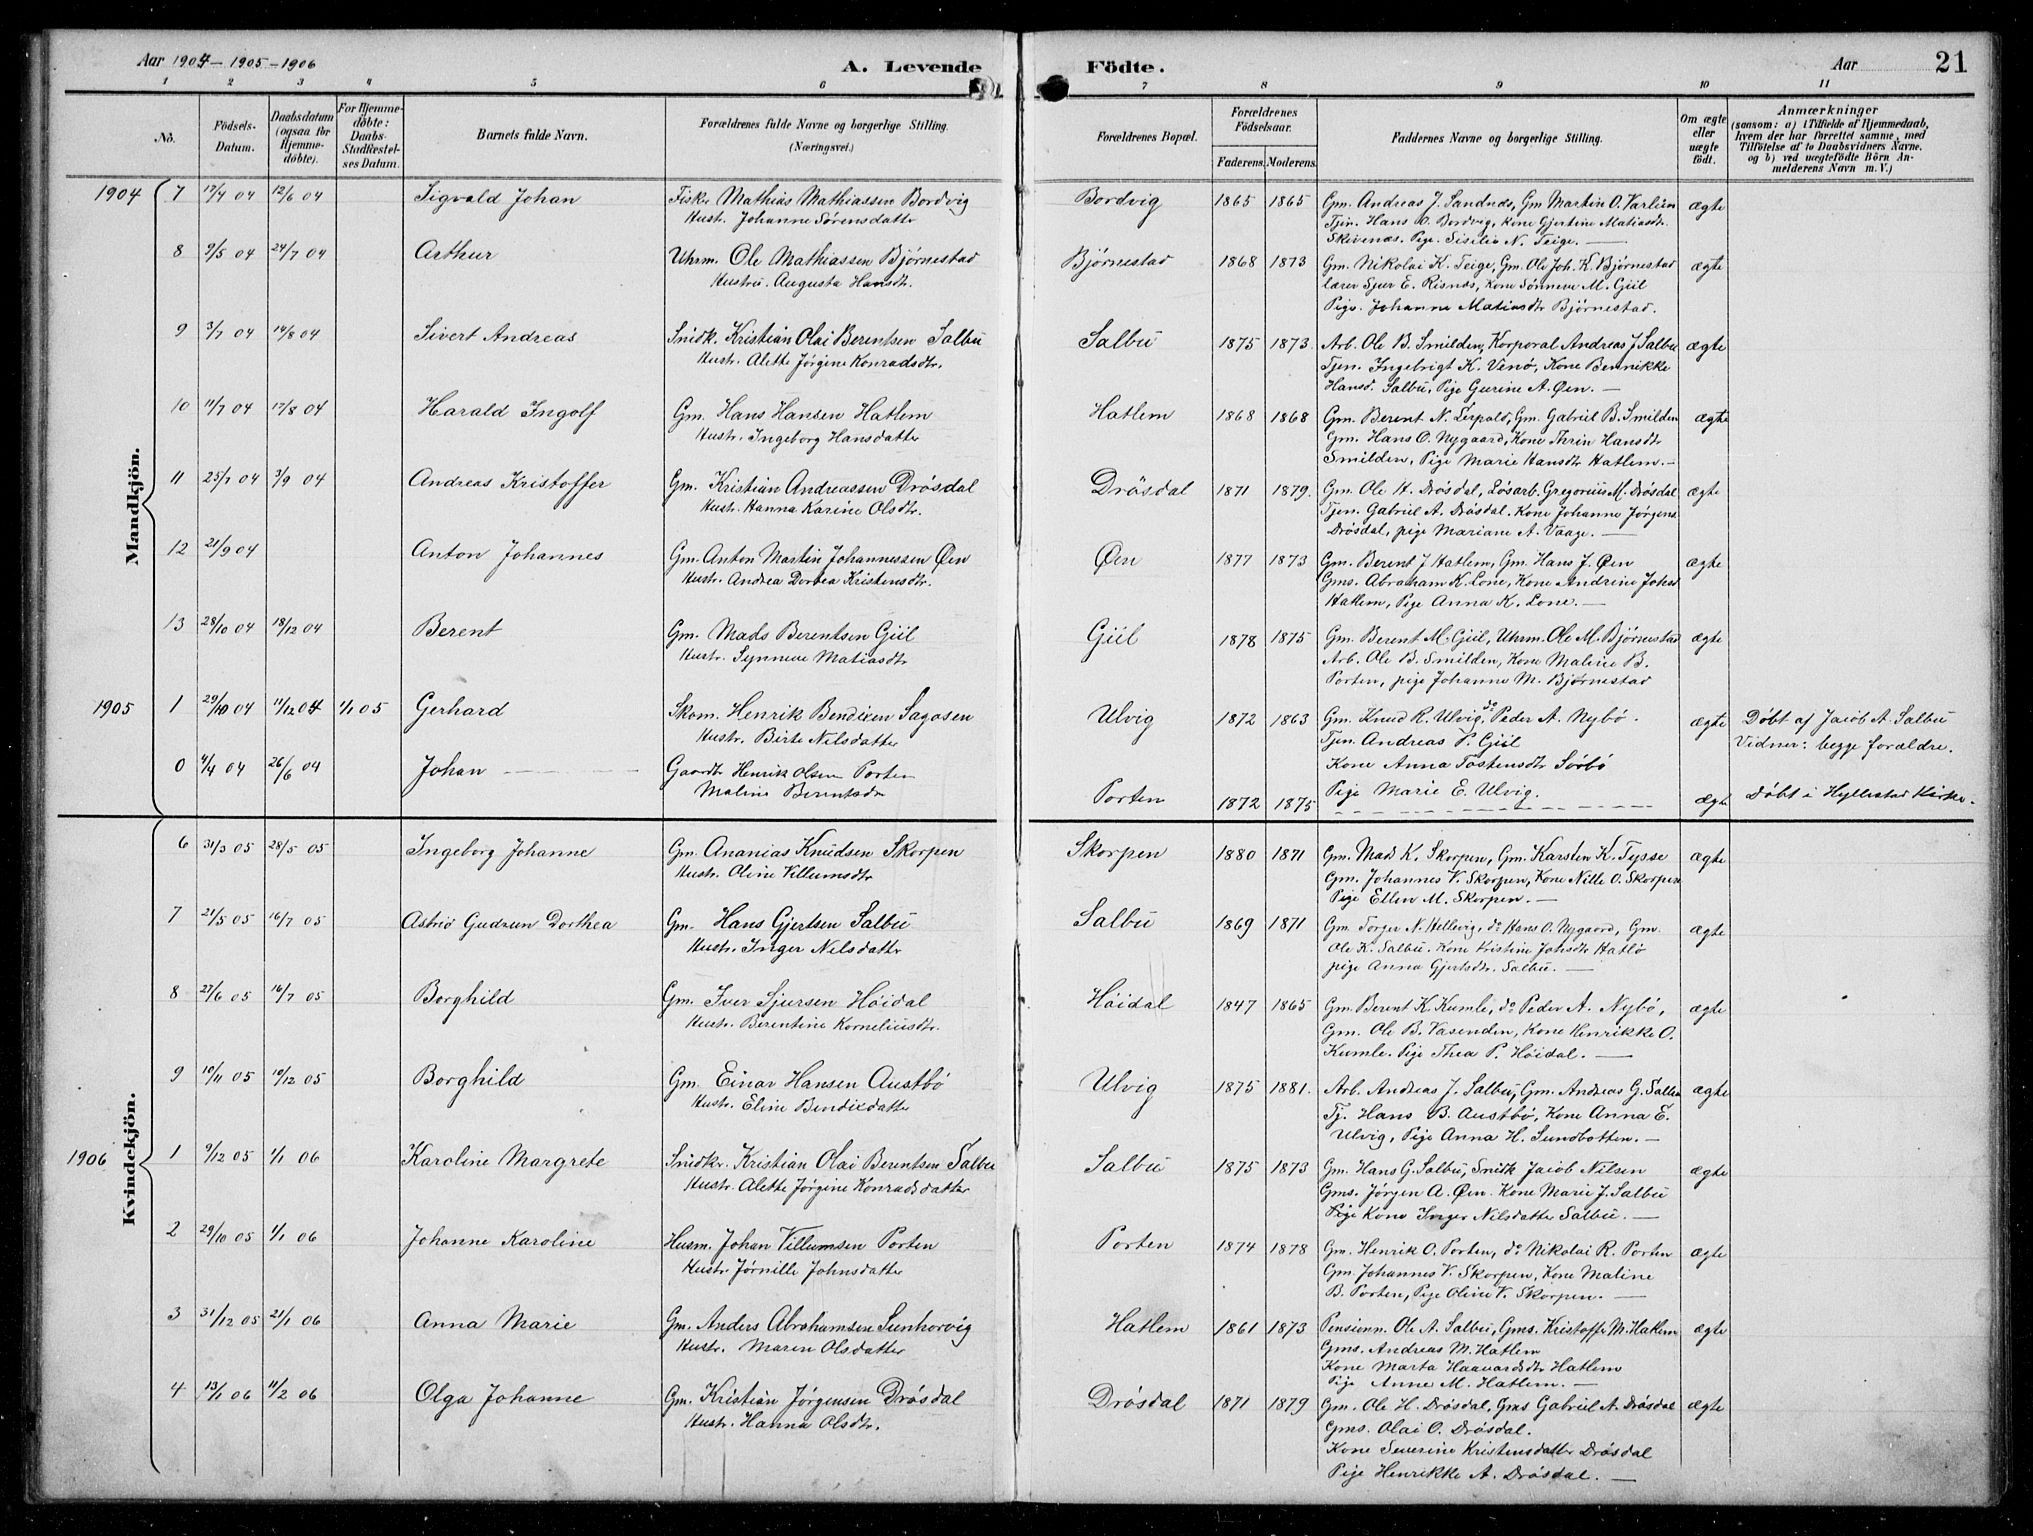 Aar 1904 - 1905 - 1906
A. Levende Födte.
Aar
21
1 2 3 4 5 6 7 8 9 10 11
No.
Födsels-Datum.
Daabsdatum (ogsaa for Hjemmedøbte).
For Hjemmedøbte: Daabs-Stadfæstelses Datum.
Barnets fulde Navn.
Forældrenes fulde Navne og borgerlige Stilling.
(Næringsvei.)
Forældrenes Bopæl.
Forældrenes Födselsaar.
Faderens. Moderens.
Faddernes Navne og borgerlige Stilling.
Om ægte eller uægte født.
Anmærkninger
(saasom: a) i Tilfælde af Hjemmedaab, hvem der har forrettet samme, med Tilföielse af to Daabsvidners Navne. og b) ved uægtefödte Börn Anmelderens Navn m. V.)
Mandkjön.
1904 7 17/4 04 12/6 04 Sigvald Johan Fisker Mathias Mathiassen Bordvig Bordvig 1865 1865 Gm. Andreas J. Sandnæs, Gm Martin O. Varlien ægte
Hust. Johanne Sörensdatter Tjen. Hans O. Bordvig, Kone Gjertine Matiasdt.
Skivenæs. Pige. Sisilie N. Teige. —
8 9/5 04 24/7 04 Arthur Uhrm. Ole Mathiassen Bjørnestad Bjørnestad 1868 1873 Gm. Nikolai K. Teige, Gm. Ole Joh. K. Bjørnestad ægte
Hustru. Augusta Hansdt. lærer Sjur E. Risnæs, Kone Sönneve M. Giil
Pige. Johanne Matiasdtr Bjørnestad.
9 3/7 04 14/8 04 Sivert Andreas Snidk. Kristian Olai Berentsen Salbu Salbu 1875 1873. Arb. Ole B. Smilden, Korporal Andreas J Salbu ægte
Hustr. Alette Jörgine Konradsdtr. Tjen. Ingebrigt K. Venö, Kone Bennikke
Hansd. Salbu, Pige Gurine A. Øen. —
10 11/7 04 17/8 04 Harald Ingolf Gm. Hans Hansen Hatlem Hatlem 1868 1868 Gm. Berent N. Leipald, Gm. Gabriel B. Smilden ægte
Hustr. Ingeborg Hansdatter Gm. Hans O. Nygaard, Kone Thrin Hansdtr
Smilden, Pige Marie Hansdtr Hatlem. —
11 25/7 04 3/9 04 Andreas Kristoffer Gm. Kristian Andreassen Drösdal Drösdal 1871 1879. Gm. Ole H. Drösdal, Løsarb. Gregorius M. Drösdal ægte
Hustr. Hanna Karine Olsdtr. Tjen. Gabriel A. Drösdal. Kone Johanne Jørgens
Drösdal, pige Mariane A. Vaage. —
12 21/9 04 Anton Johannes Gm. Anton Martin Johannessen Øen Øen 1877 1873 Gm. Berent J Hatlem, Gm. Hans J. Øen ægte
Hustr. Andrea Dortea Kristensdtr. Gms. Abraham K. Lone, Kone Andrine Johsd
Hatlem, Pige Anna K. Lone. —
13 28/10 04 18/12 04 Berent Gm. Mads Berentsen Giil Giil 1878 1875 Gm. Berent M. Giil, Uhrm. Ole M. Bjørnestad ægte
Hustr. Synneve Matiasdtr Arb. Ole B. Smilden, Kone Maline B.
Porten, pige Johanne M. Bjørnestad
1905 1 29/10 04 11/12 04 1/1 05 Gerhard Skom. Henrik Bendixen Sagosen Ulvig 1872 1863 Gm. Knud R. Ulvig, do Peder A. Nybö. ægte Döbt af Jacob A. Salbu
Hustr. Birte Nilsdatter Tjen. Andreas P. Giil Vidner: begge forældre.
Kone Anna Tostensdtr Söbö
Pige Marie E. Ulvig.
0 4/4 04 26/6 04 Johan Gaardbr Henrik Olsen Porten Porten 1872 1875 ægte Döbt i Hyllestad Kirke.
Maline Berentsdr
Kvindekjön.
6 31/3 05 28/5 05 Ingeborg Johanne Gm. Ananias Knudsen Skorpen Skorpen 1880 1871 Gm. Mad K. Skorpen, Gm. Karsten K. Tysse ægte
Hustr. Oline Villumsdtr Gm. Johannes V. Skorpen, Kone Nille O. Skorpen
Pige Ellen M. Skorpen. —
7 21/5 05 16/7 05 Astrid Gudrun Dorthea Gm. Hans Gjertsen Salbu Salbu 1869 1871 Gm. Torger N. Hellevig, do Hans O. Nygaard, Gm. ægte
Hustr. Inger Nilsdatter Ole K. Salbu. Kone Kristine Johsdtr Hatlö
pige Anna Gjertsdtr. Salbu. —
8 27/6 05 16/7 05 Borghild Gm. Iver Sjursen Höidal Höidal 1847 1865 Gm. Berent K. Kumle, do Peder A. Nybö, ægte
Hustr. Berentine Korneliusdtr. Gm. Ole B. Vasenden, Kone Henrikke O.
Kumle. Pige Thea P. Höidal. —
9 10/11 05 10/12 05 Borghild Gm. Einar Hansen Austbö Ulvig 1875 1881. Arb. Andreas J. Salbu, Gm. Andreas G. Salbu ægte
Hustr. Eline Bendixdatter Tj. Hans B. Austbö, Kone Anna E.
Ulvig, Pige Anna H. Sundbotten. —
1906 1 9/12 05 1/1 06 Karoline Margrete Snidkr. Kristian Olai Berentsen Salbu Salbu 1875 1873 Gm. Hans G. Salbu, Snidk Jacob Nilsen ægte
Hustr. Alette Jörgine Konradsdatter Gms. Jörgen A. Øen. Kone Marie J. Salbu
Pige Kone Inger Nilsdatter Salbu. —
2 29/10 05 1/1 06 Johanne Karoline Husm. Johan Villumsen Porten Porten 1874 1878 Gm. Henrik O. Porten, do Nikolai R. Porten ægte
Hustr Jörnille Johnsdatter Gm. Johannes V. Skorpen, Kone Maline
B. Porten, Pige Oline V. Skorpen. —
3 31/12 05 21/1 06 Anna Marie Gm. Anders Abrahamsen Sunhorvig Hatlem 1861 1873 Pensionn. Ole A. Salbu, Gms. Kristoffe M. Hatlem ægte
Hustr. Maren Olsdatter Gms. Andreas M. Hatlem
Kone Marta Haavardsdtr Hatlem
Pige Anne M. Hatlem. —
4 13/1 06 11/2 06 Olga Johanne Gm. Kristian Jørgensen Drösdal Drösdal 1871 1879 Gm. Ole H. Drösdal, Gms Gabriel A. Drösdal ægte
Hustr. Hanna Olsdtr. Gms. Olai O. Drösdal.
Kone Severine Kristensdatter Drösdal
Pige Henrikke A. Drösdal. —